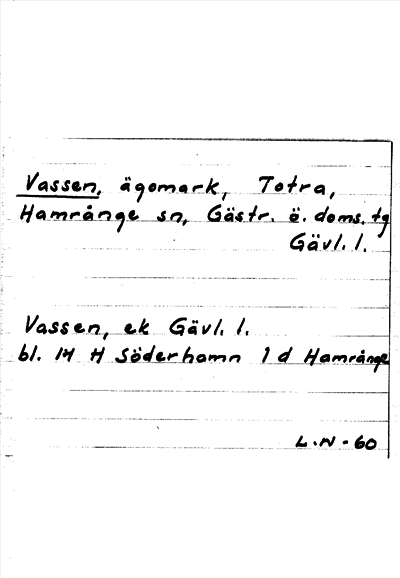 Vassen, ägomark, Totra,
Hamrånge sn, Gästr. ö. doms. tg
Gävl. l.
Vassen, ek Gävl. l.
bl. 14 H Söderhamn 1 d Hamrånge
L.N - 60